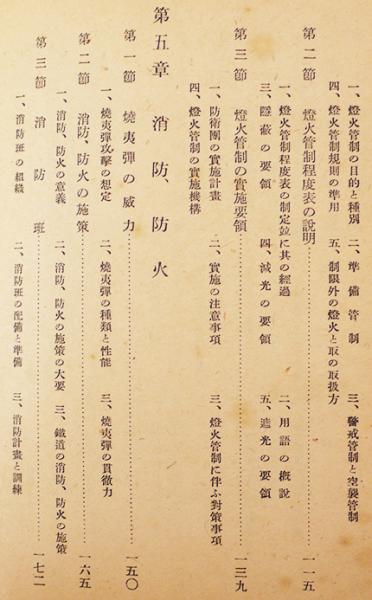 一、燈火管制の目的と種別　二、準備管制　三、警戒管制と空襲管制
四、燈火管制規則の準用　五、制限外の燈火と取の取扱方
第二節　燈火管制程度表の説明……………一一五
一、燈火管制程度表の制定竝に其の經過　二、用語の槪說
三、隱蔽の要領　四、減光の要領　五、遮光の要領
第三節　燈火管制の實施要領……………一三九
一、防衛團の實施計畫　二、實施の注意事項　三、燈火管制に伴ふ對策事項
四、燈火管制の實施機構
第五章　消防、防火
第一節　燒夷彈の威力……………一五〇
一、燒夷彈攻擊の想定　二、燒夷彈の種類と性能　三、燒夷彈の貫徹力
第二節　消防、防火の施策……………一六五
一、消防、防火の意義　二、消防、防火の施策の大要　三、鐵道の消防、防火の施策
第三節　消防班……………一七二
一、消防班の組織　二、消防班の配備と準備　三、消防計畫と訓練